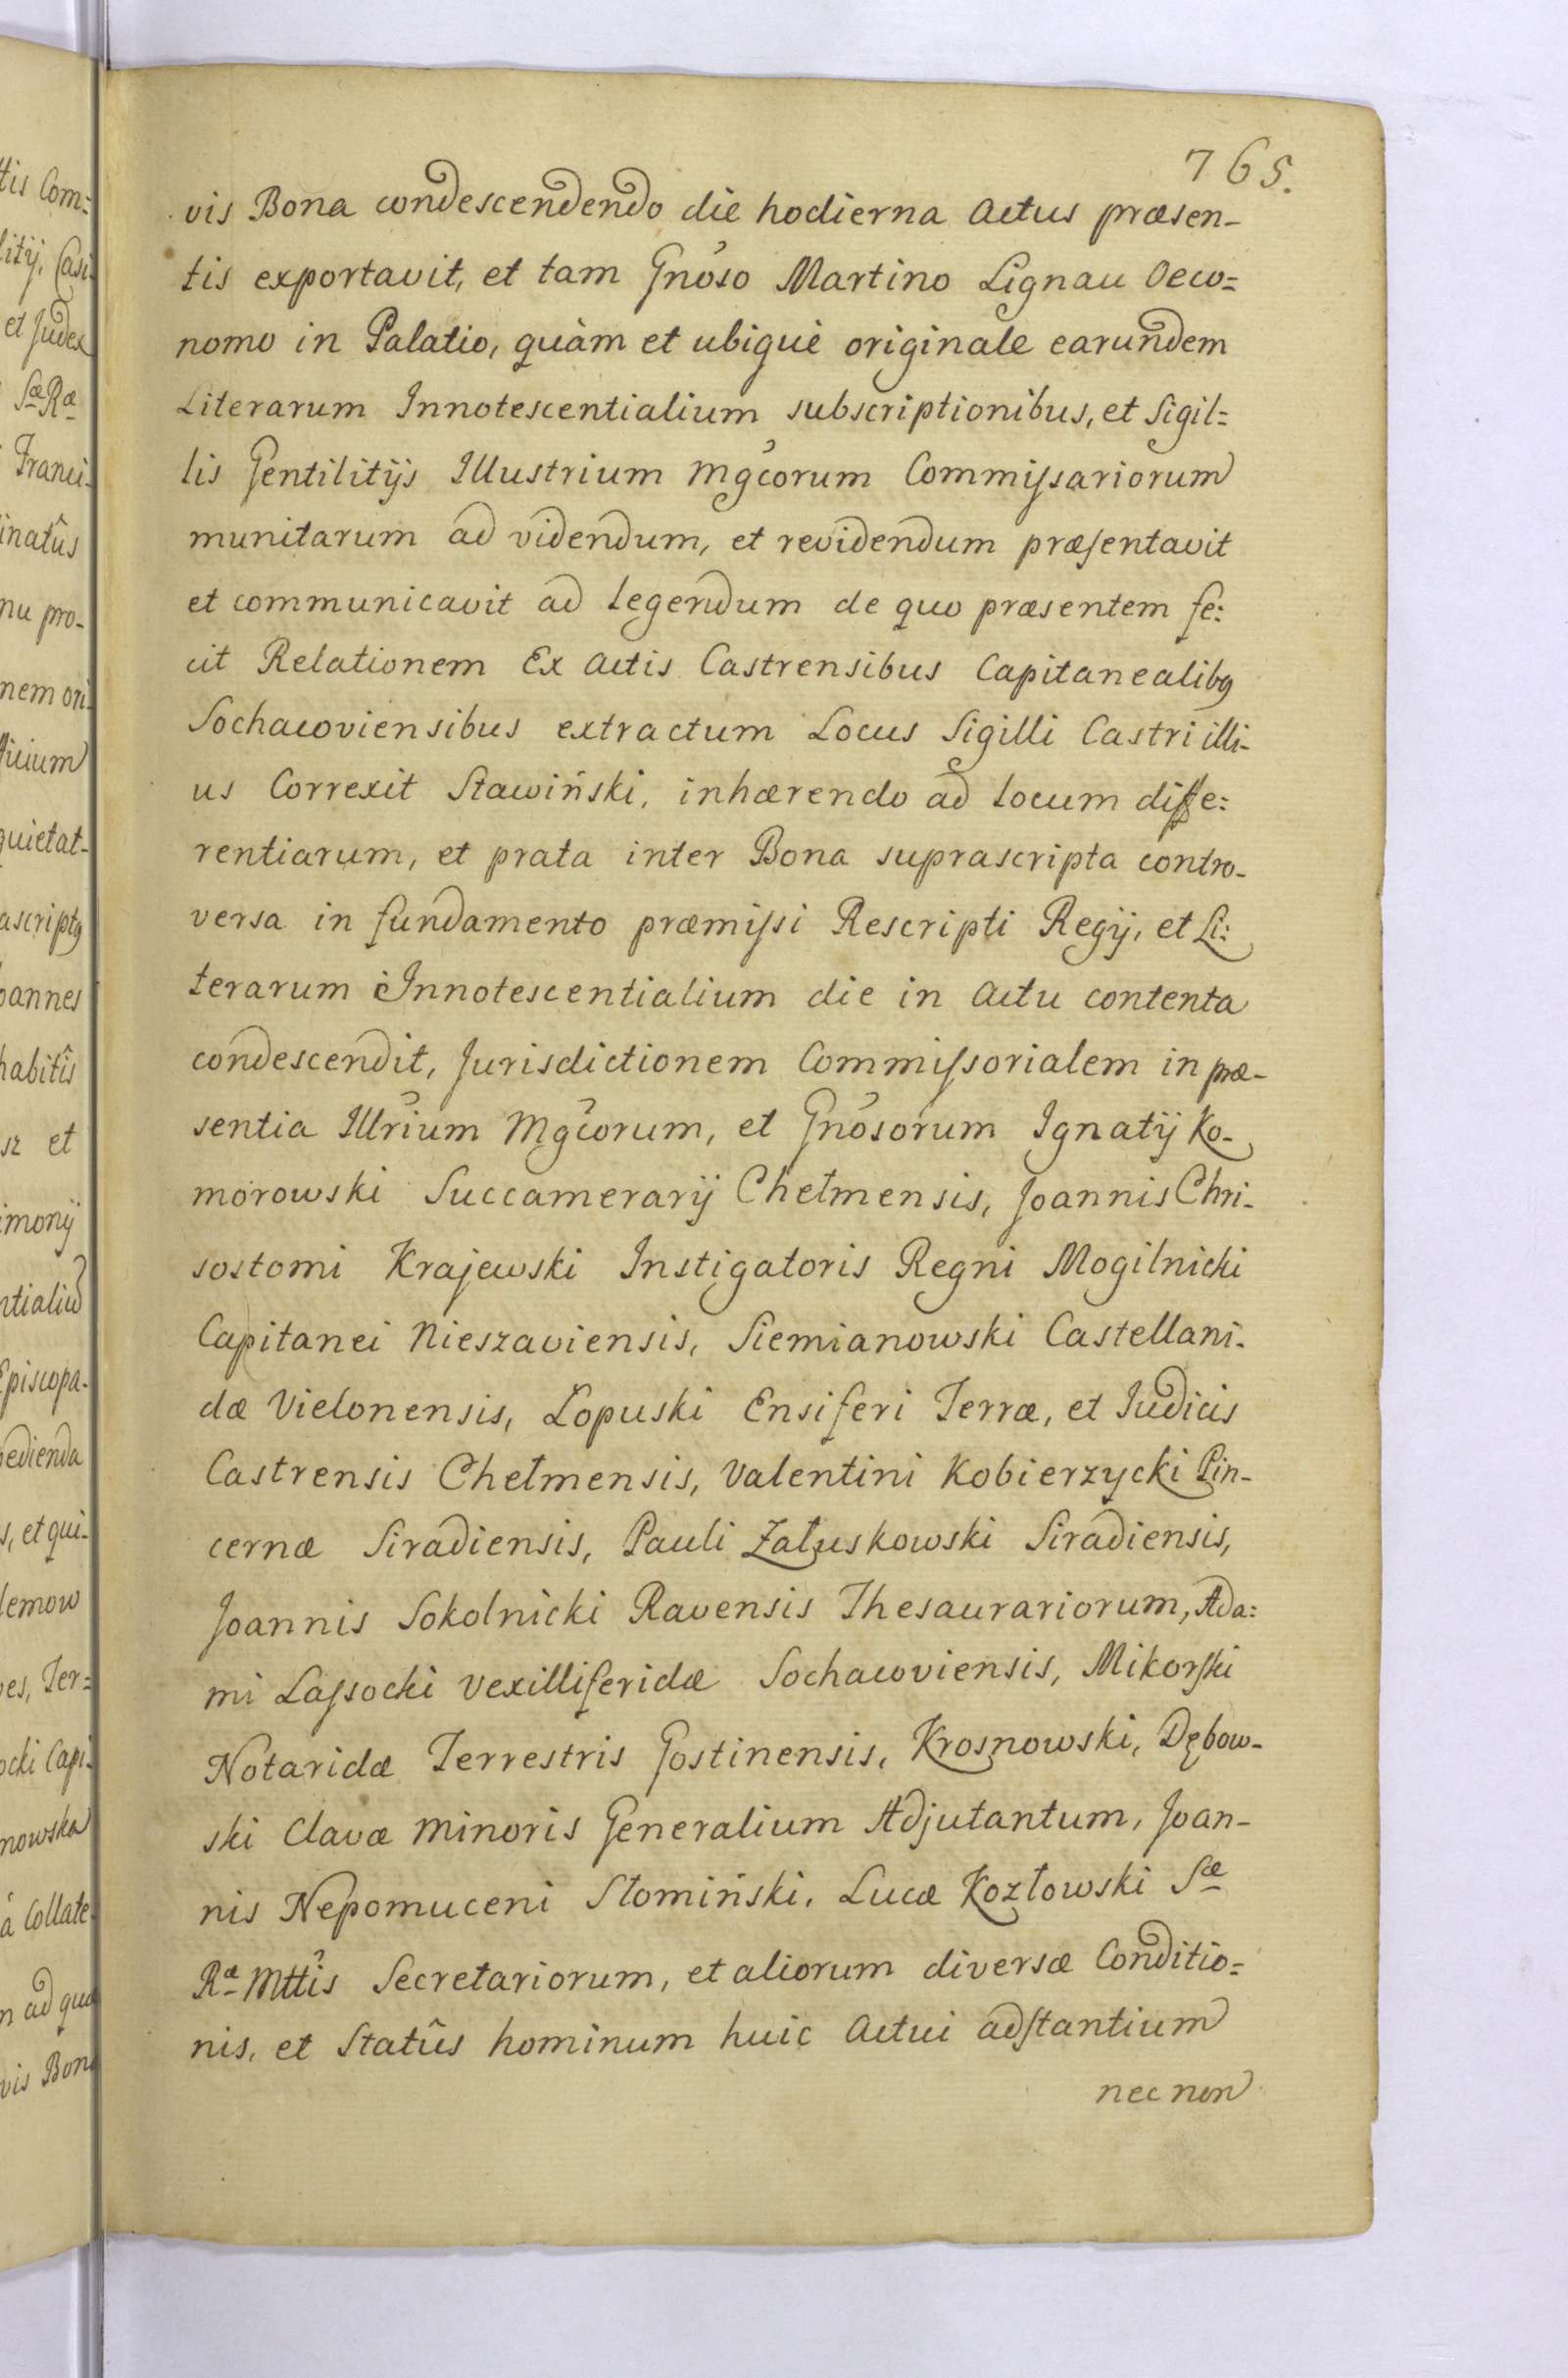 765.
vis Bona condescendendo die hodierna Actus præsen-
tis exportavit, et tam Gnoso Martino Lignau Oeco=
nomo in Palatio, quàm et ubique originale earundem
Literarum Innotescentialium subscriptionibus, et Sigil=
lis Gentilitijs Illustrium Mgcorum Commissariorum
munitarum ad videndum, et revidendum præsentavit
et communicavit ad legendum de quo præsentem fe:
cit Relationem Ex Actis Castrensibus Capitanealibq
Sochacoviensibus extractum Locus Sigilli Castri illi-
us Correxit Stawiński, inhærendo ad locum diffe:
rentiarum, et prata inter Bona suprascripta contro-
versa in fundamento præmissi Rescripti Regij, et Li:
terarum Innotescentialium die in Actu contenta
condescendit, Jurisdictionem Commissorialem in præ-
sentia Illrium Mgcorum, et Gnosorum Ignatij Ko-
morowski Succamerarij Chełmensis, Joannis Chri-
sostomi Krajewski Instigatoris Regni Mogilnicki
Capitanei Nieszaviensis, Siemianowski Castellani-
dæ Vielonensis, Łopuski Ensiferi Terræ, et Judicis
Castrensis Chełmensis, Valentini Kobierzycki Pin-
cernæ Siradiensis, Pauli Załuskowski Siradiensis,
Joannis Sokolnicki Ravensis Thesaurariorum, Ada:
mi Lassocki Vexilliferidæ Sochacoviensis, Mikorski
Notaridæ Terrestris Gostinensis, Krosnowski, Dębow-
ski Clavæ Minoris Generalium Adjutantum, Joan-
nis Nepomuceni Słomiński, Lucæ Kozłowski Sæ
Ræ Mttis Secretariorum, et aliorum diversæ Conditio=
nis, et Statûs hominum huic Actui adstantium
nec non